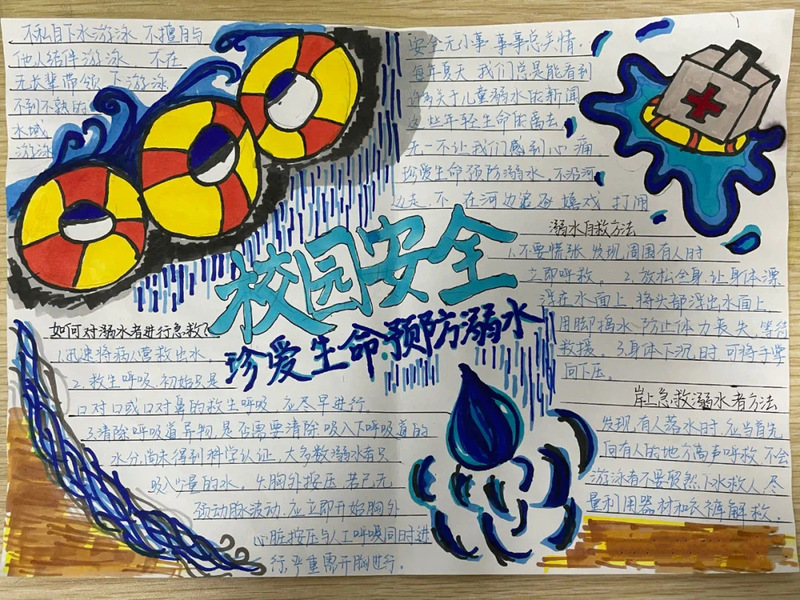 不私自下水游泳 不擅自与
他人结伴游泳 不在
无长辈带领下游泳
不到不熟的
水域
游泳
安全无小事 事事总关情.
每年夏天 我们总是能看到
许多关于儿童溺水的新闻
这些年轻生命的离去
无一不让我们感到心痛
珍爱生命 预防溺水 不沿河
边走 不在河边 嬉戏 打闹
校园安全
珍爱生命 预防溺水
溺水自救方法
1.不要慌张 发现周围有人时
立即呼救。2.放松全身 让身体漂
浮在水面上 将头部浮出水面上
用脚捣水 防止体力丧失 等待
救援。3.身体下沉时 可将手掌
向下压。
如何对溺水者进行急救?
1.迅速将病人营救出水
2.救生呼吸 初始只是
口对口或口对鼻的救生呼吸 应尽早进行
3.清除呼吸道异物 是否需要清除吸入下呼吸道的
水分 尚未得到科学认证 大多数溺水者只
吸入少量的水。4.胸外按压 若已无
颈动脉波动 应立即开始胸外
心脏按压与人工呼吸同时进
行 严重需开胸进行。
岸上急救溺水者方法
发现有人溺水时 应当首先
向有人的地方高声呼救 不会
游泳者不要贸然下水救人 尽
量利用器材和衣裤解救.